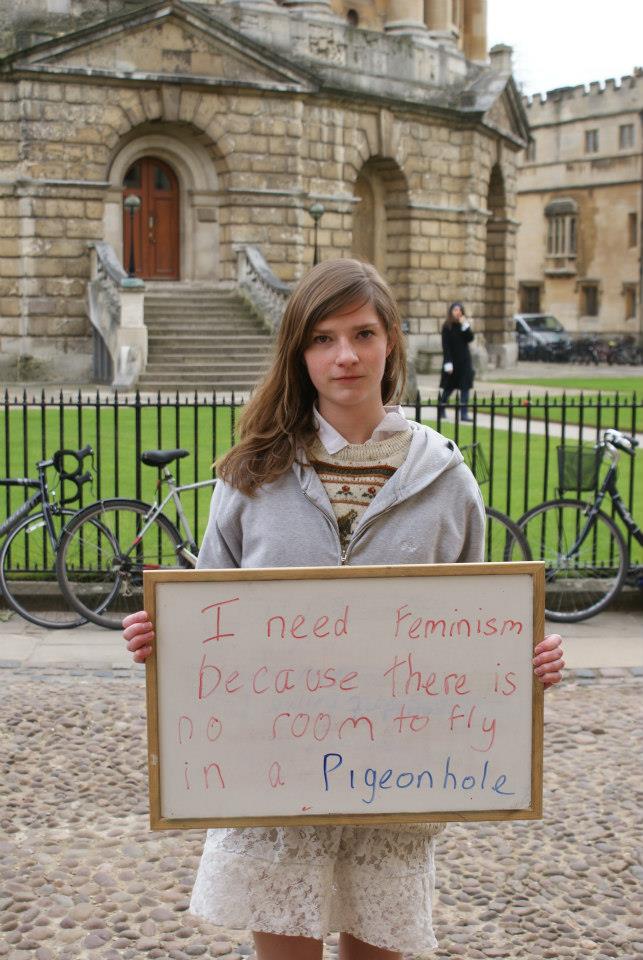 I need Feminism
because there is
no room to fly
in a Pigeonhole